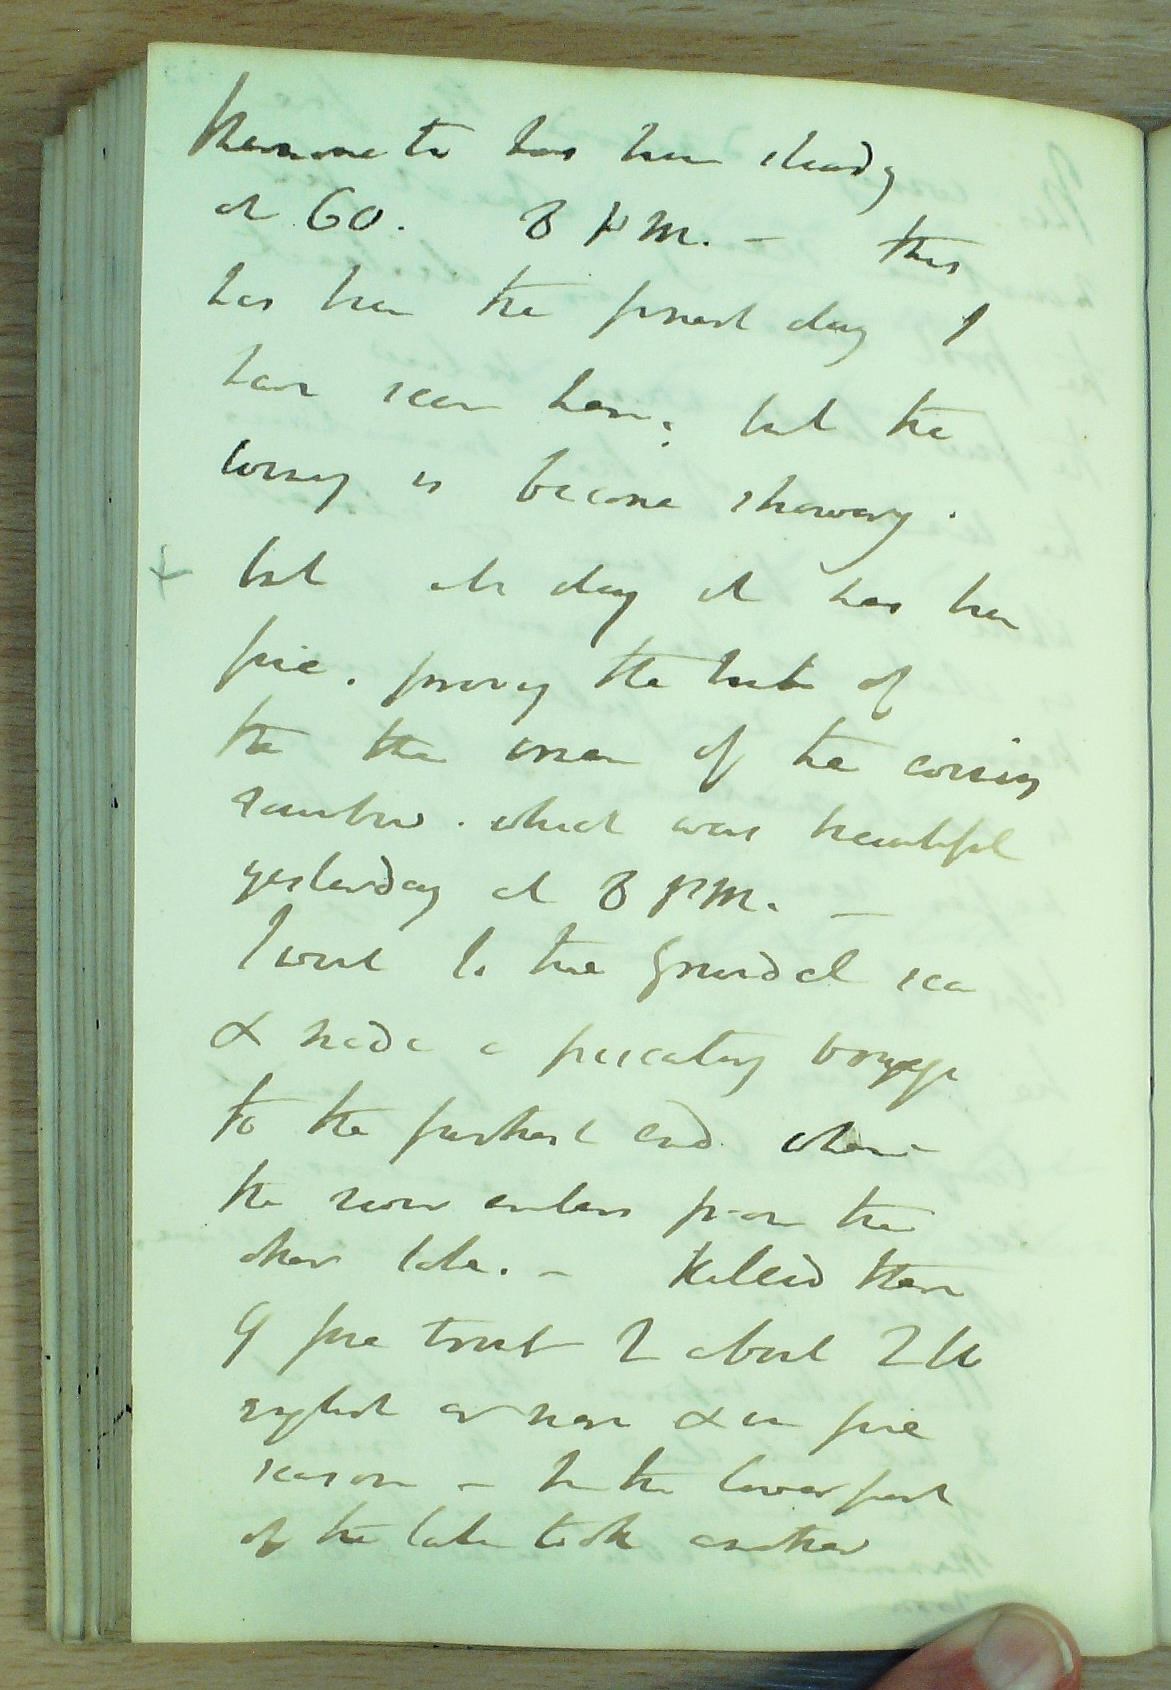 Thermometer has been steady
at 60. 8 PM. - This
has been the finest day I
have seen here; but the
evening is become showery.
+ but all day it has been
fine. proving the truth of
the the omen of the evening
rainbow. which was beautiful
yesterday at 8 PM. -
I went to the Grundel see
& made a piscatory voyage
to the furthest end where
the river enters from the
other lake. - Killed there
9 fine trout 2 about 2 lb
weight or more & in fine
season - In the lower part
of the lake took another